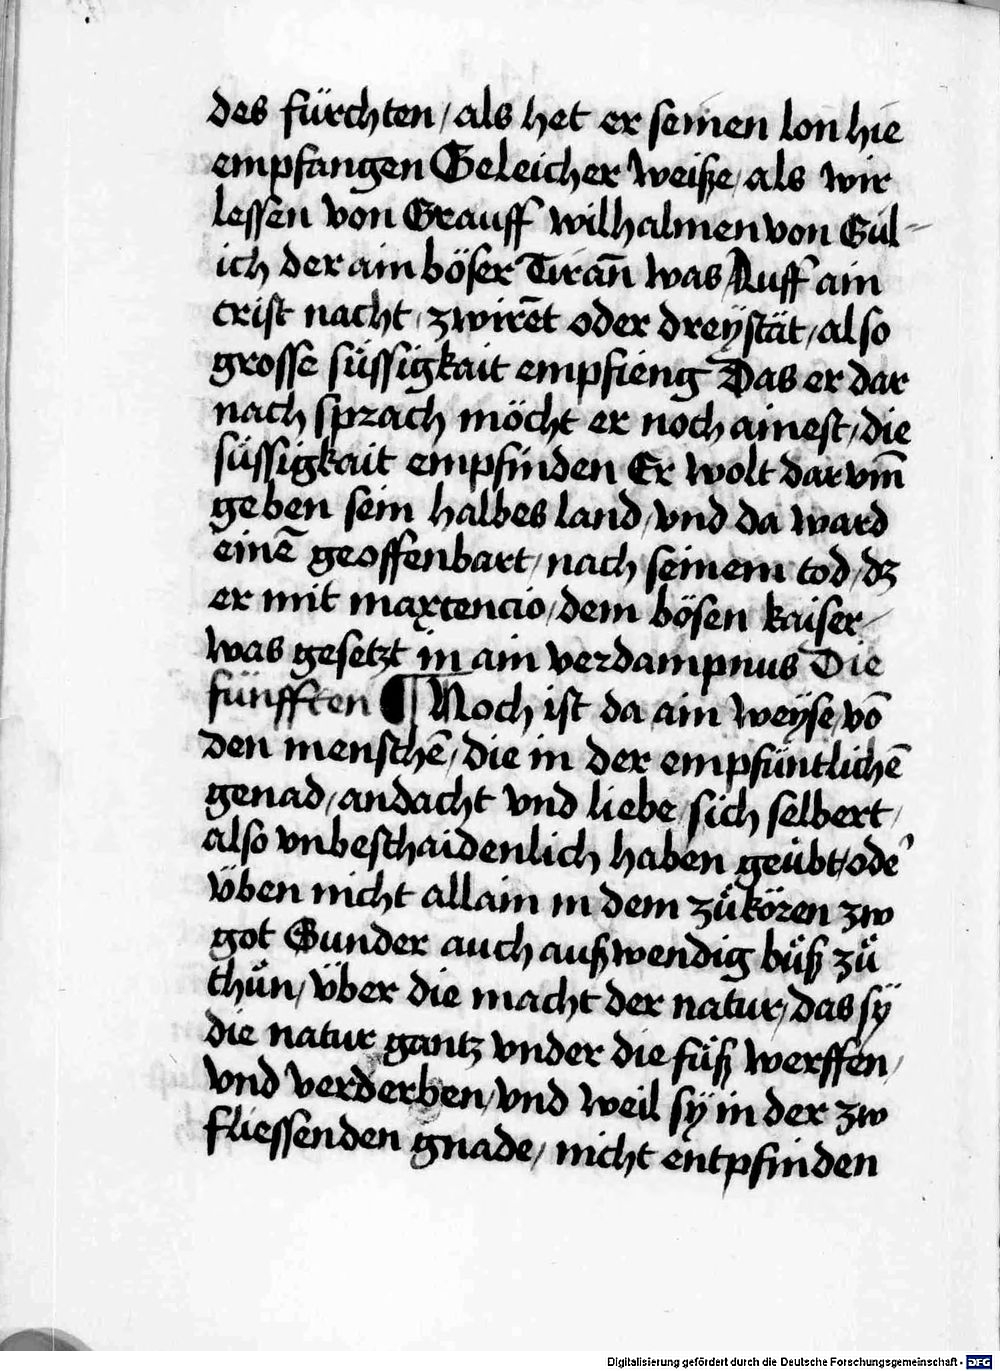 des fürchten / als het er seinen lon hie
empfangen Geleicher weiße / als wir
lessen von Grauff wilhalmen von Gül-
ich der ain böser Tirañ was Auff ain
crist nacht / zwirēt oder dreÿstät / also
grosse süssigkait empfieng Das er dar
nach sprach möcht er noch ainest / die
süssigkait empfinden Er wolt darvm̄
geben sein halbes land / vnd da ward
einē geoffenbart / nach seinem tod / dz
er mit maxencio / dem bösen kaiser /
was gesetzt in ain verdampnus Die
fünfften ¶ Noch ist da ain weÿse / vō
den menschē / die in der empfüntlichē
genad / andacht vnd liebe / sich selbert /
also vnbeschaidenlich haben geübt / ode'
vben nicht allain in dem zůkören zw
got Sunder auch außwendig bůß zů
thůn / vber die macht der natur / das sÿ
die natur gantz vnder die fůß werffen /
vnd verderben / vnd weil sÿ in der zw
fliessenden gnade / nicht entpfinden
Digitalisierung gefördert durch die Deutsche Forschungsgemeinschaft - DFG